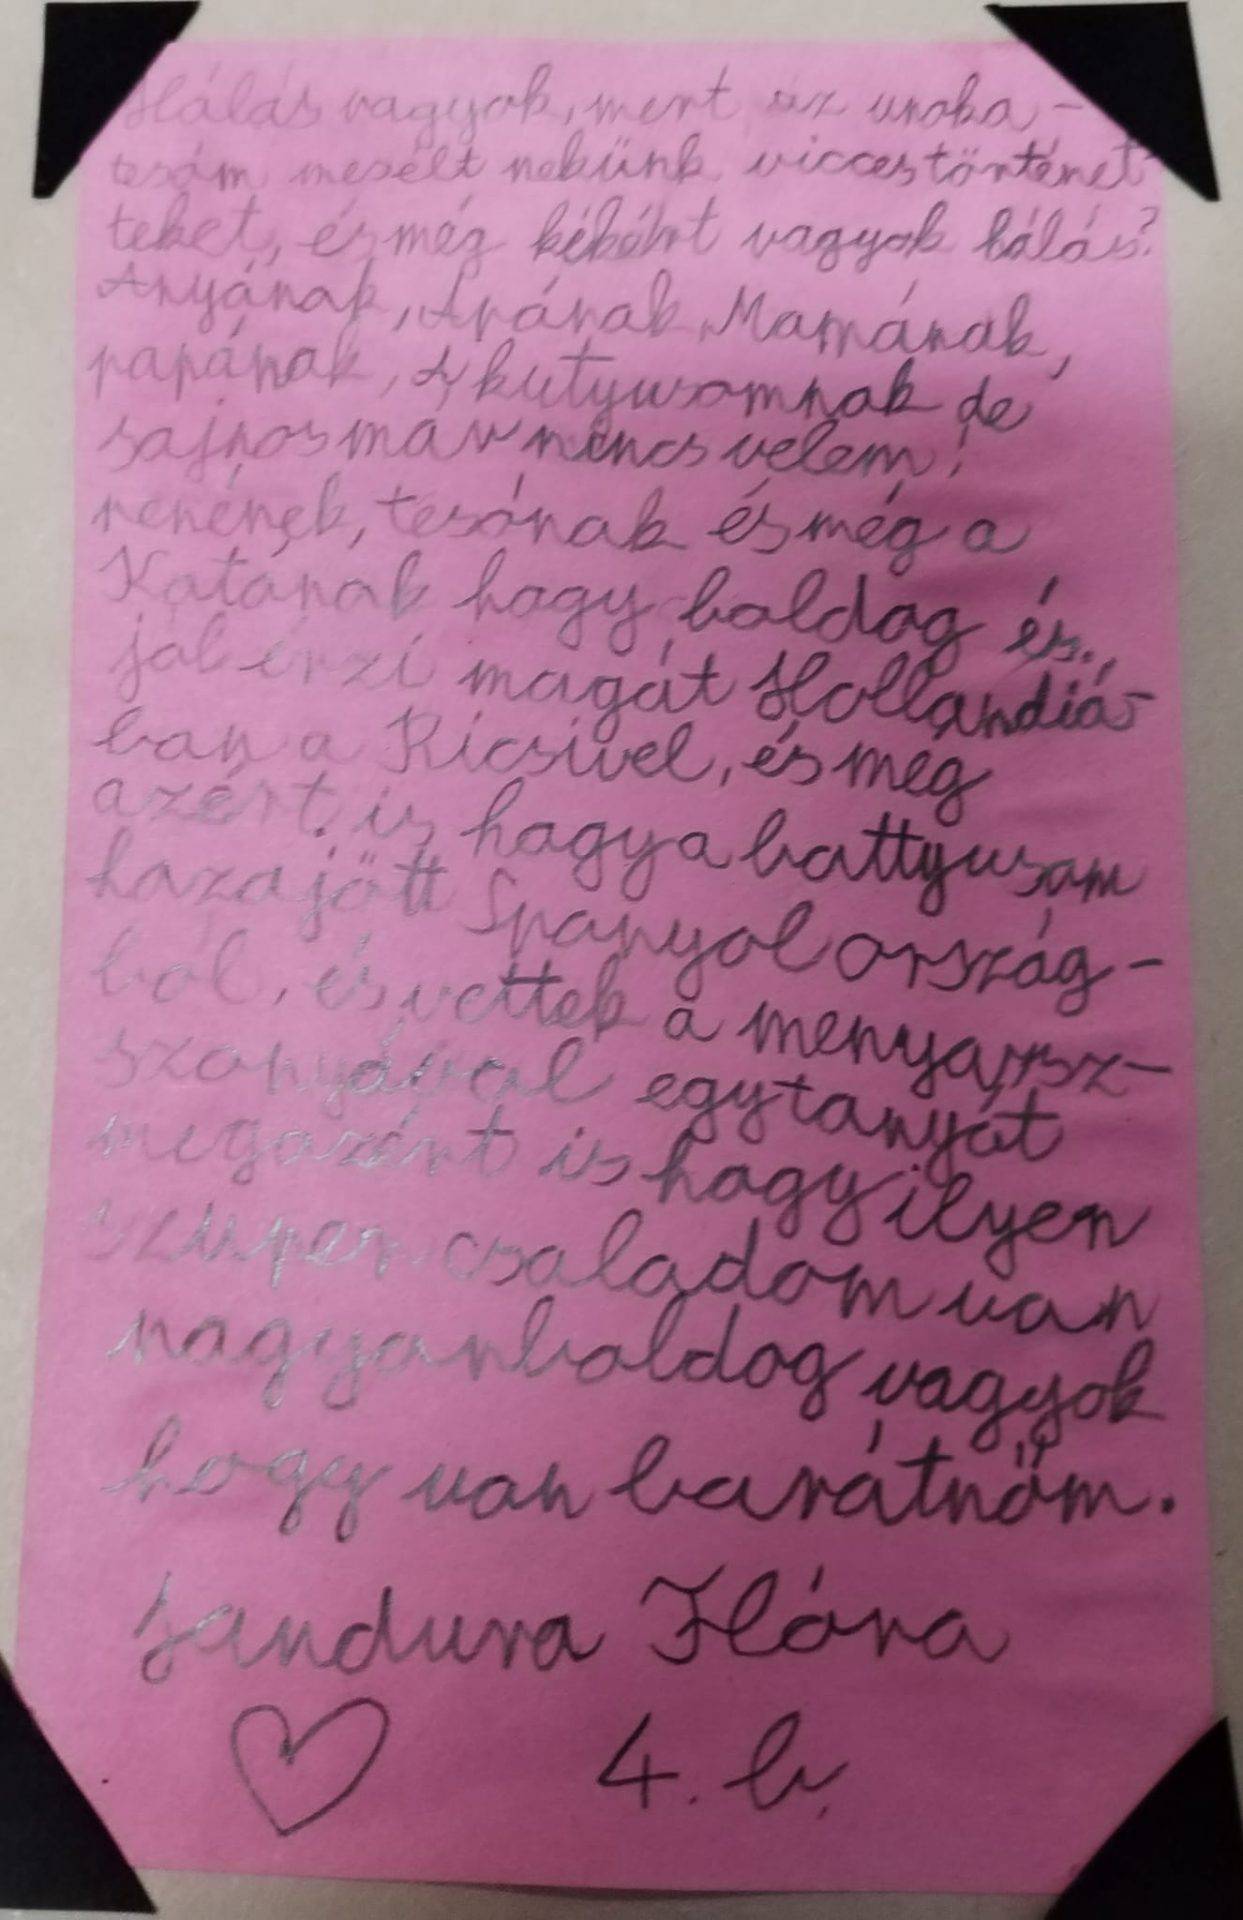 Hálás vagyok, mert az unoka-
tesóm mesélt nekünk vicces történet-
teket, és még kikért vagyok hálás?
Anyának, Apának, Mamának,
papának, A kutyusomnak de
sajnos már nincs velem!
nenének, tesónak és még a
Katának hogy boldog és
jól érzi magát Hollandiá-
ban a Ricsivel, és meg
azért is hogy a battyusom
hazajött Spanyol ország-
ból, és vettek a menyassz-
szonyával egy tanyát
meg azért is hogy ilyen
szuper családom van
nagyon boldog vagyok
hogy van barátnőm.
Sandura Flóra
4. b.